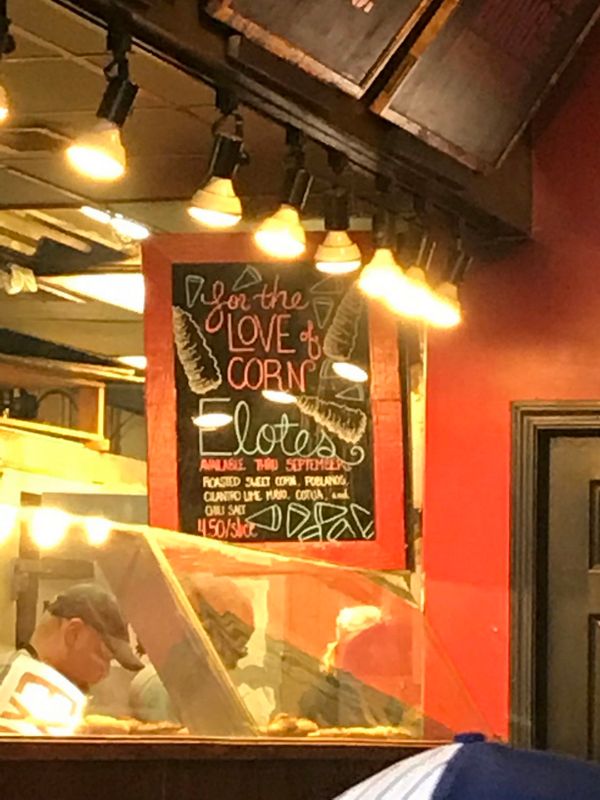 for the
LOVE of
CORN
Elotes
AVAILABLE THRU SEPTEMBER
ROASTED SWEET CORN, POBLANO,
CILANTRO LIME MAYO, COTIJA, and
CHILI SALT
4.50/slice